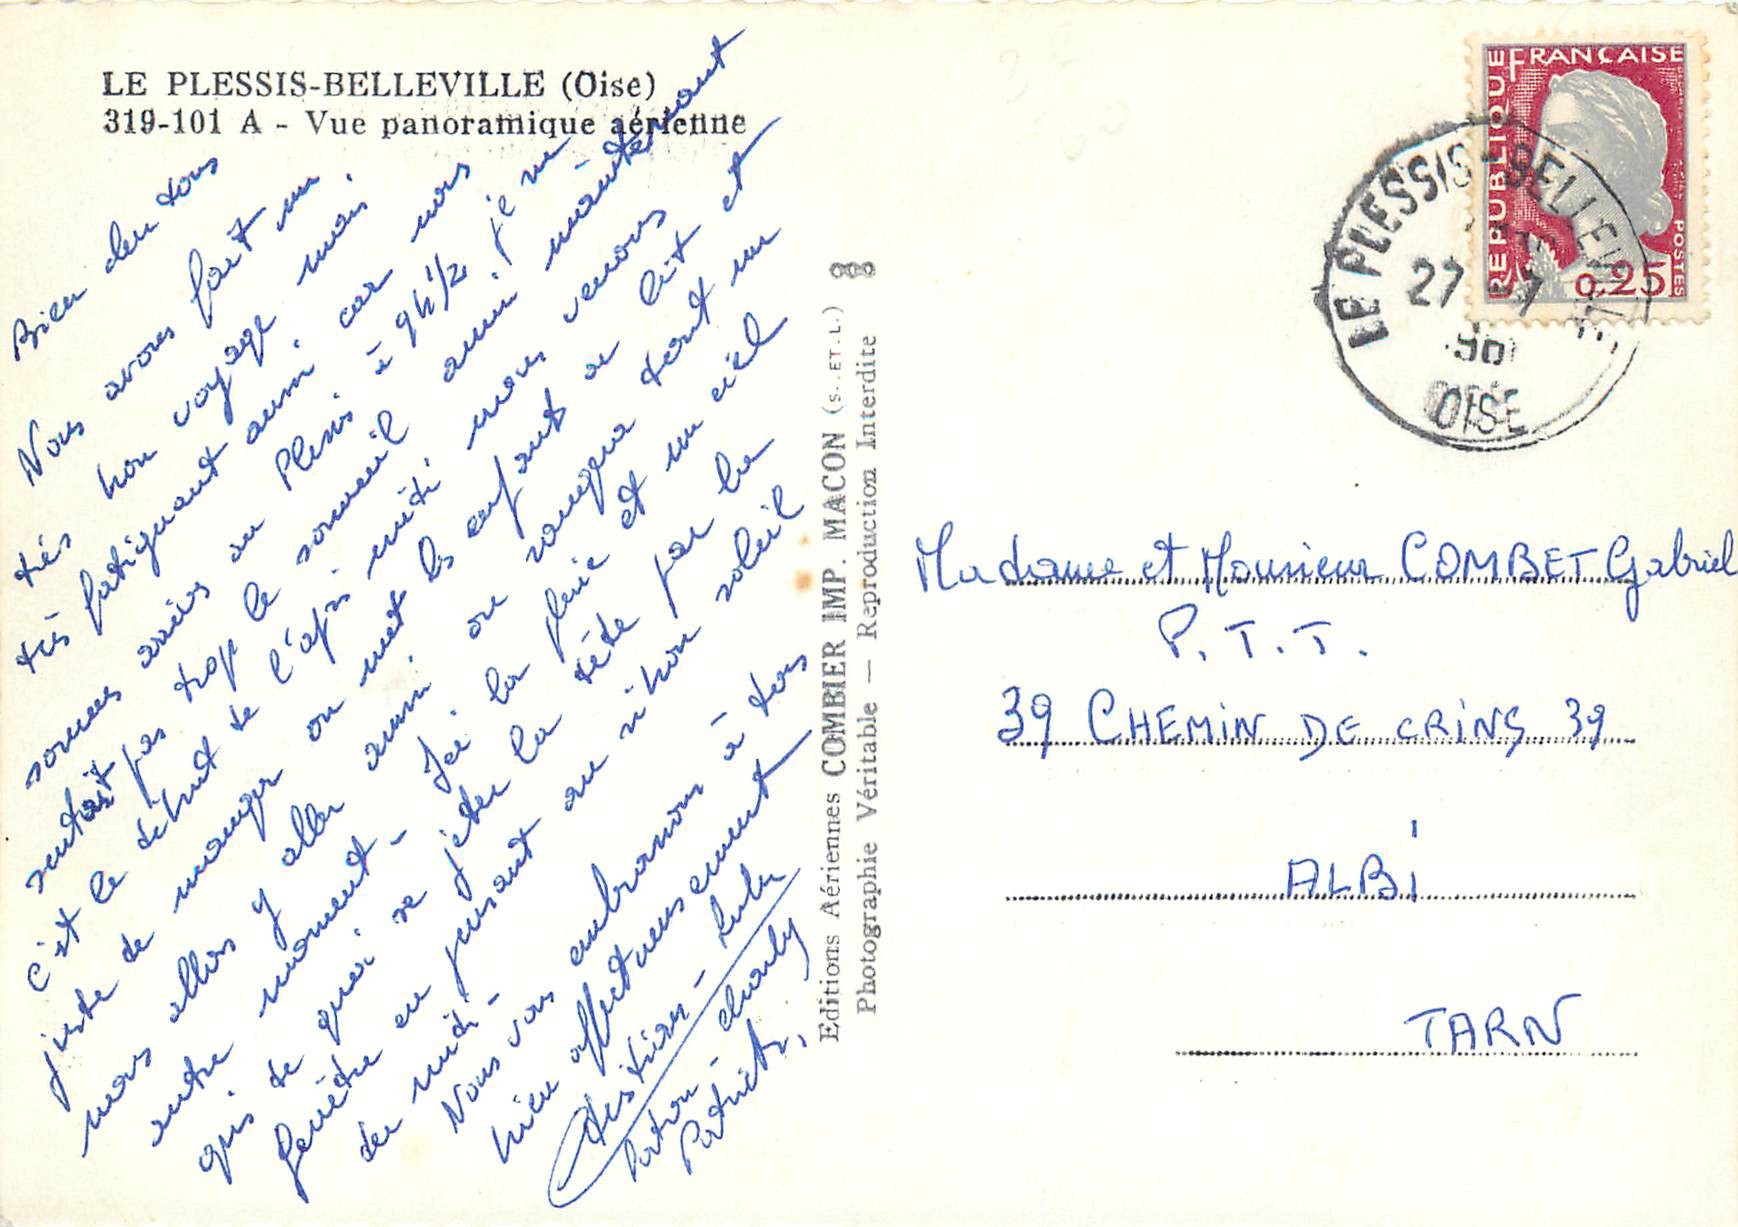 LE PLESSIS-BELLEVILLE (Oise)
319-101 A - Vue panoramique aérienne
Bien chers tous
Nous avons fait un
très bon voyage mais
très fatiguant aussi, car nous
sommes arrivés au Plessis à 9h1/2, je ne
sentait pas trop le sommeil aussi maintenant
c'est le début de l'après midi, nous venons
juste de manger on met les enfants au lit et
nous allons y aller aussi on rangera tout un
autre moment - Ici la pluie et un ciel
gris de quoi se jeter la tête par la
fenêtre en pensant au si bon soleil
du midi -
Nous vous embrassons à tous
bien affectueusement
Christian - Lulu
Patrou - charly
Patrick.
Editions Aériennes COMBIER IMP. MACON (S. ET. L.)
Photographie Véritable — Reproduction Interdite
RÉPUBLIQUE FRANÇAISE
POSTES
0,25
LE PLESSIS-BELLEVILLE
27 -7
196
OISE
Madame et Monsieur COMBET Gabriel
P. T. T.
39 CHEMIN DE CRINS 39
ALBI
TARN